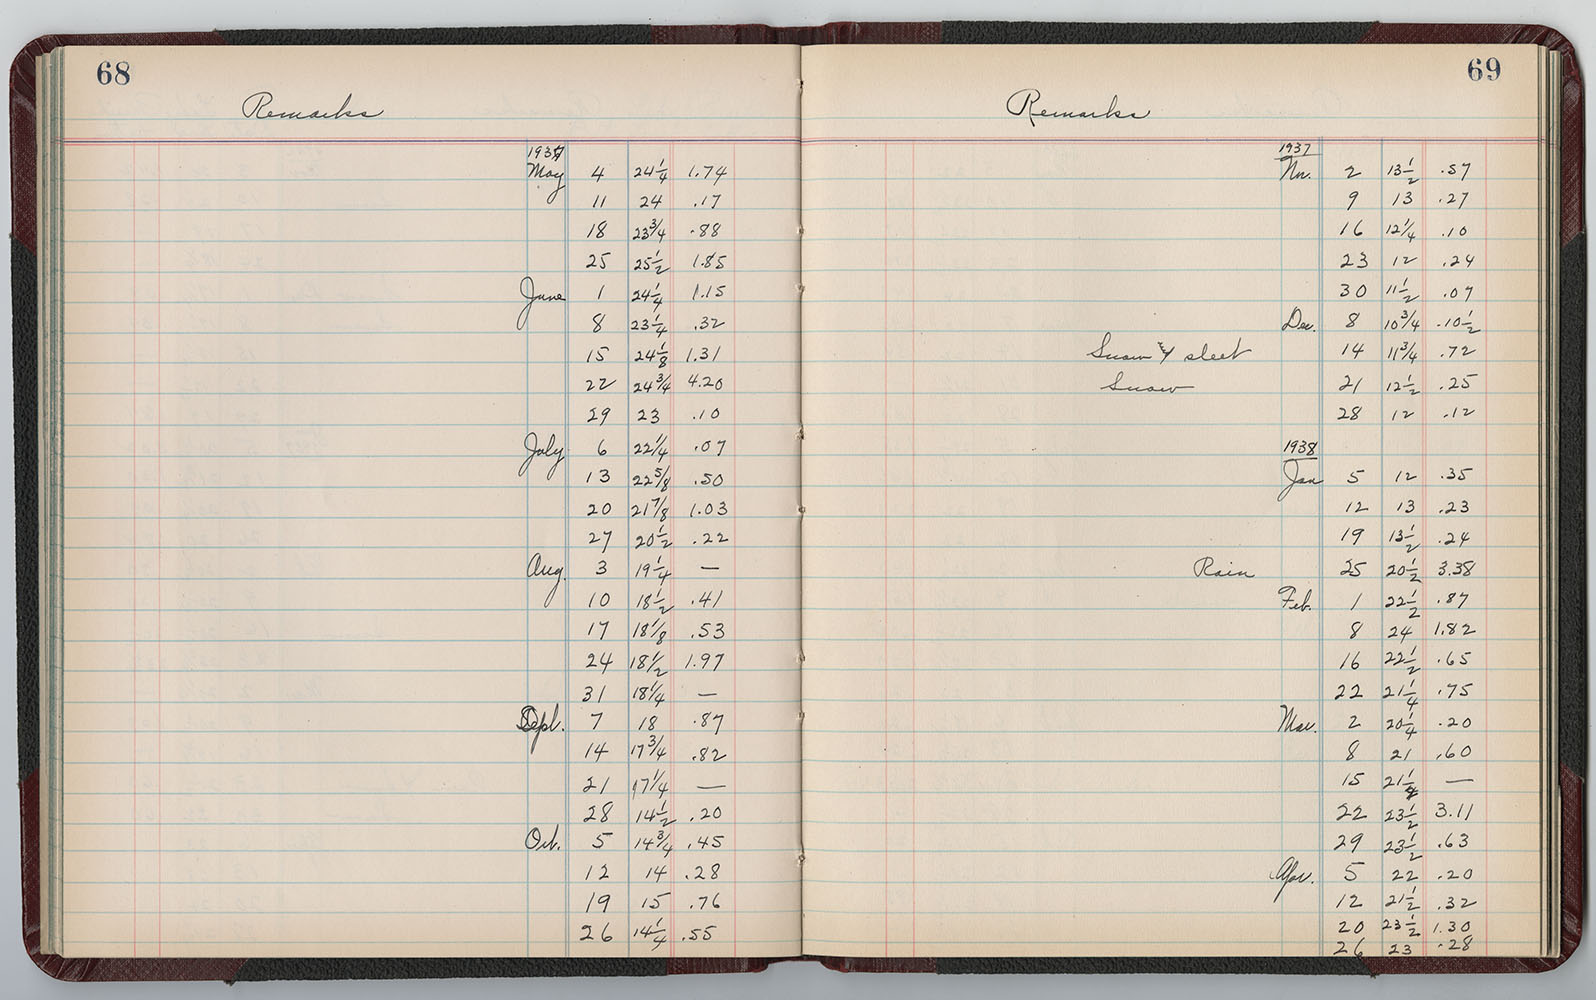 68
Remarks
1937
May 4 24 1/4 1.74
11 24 .17
18 23 3/4 .88
25 25 1/2 1.85
June 1 24 1/4 1.15
8 23 1/4 .32
15 24 1/8 1.31
22 24 3/4 4.20
29 23 .10
July 6 22 1/4 .07
13 22 5/8 .50
20 21 7/8 1.03
27 20 1/2 .22
Aug. 3 19 1/4 —
10 18 1/2 .41
17 18 1/8 .53
24 18 1/2 1.97
31 18 1/4 —
Sept. 7 18 .87
14 17 3/4 .82
21 17 1/4 —
28 14 1/2 .20
Oct. 5 14 3/4 .45
12 14 .28
19 15 .76
26 14 1/4 .55
69
Remarks
1937
Nov. 2 13 1/2 .57
9 13 .27
16 12 1/4 .10
23 12 .24
30 11 1/2 .07
Dec. 8 10 3/4 .10 1/2
Snow & sleet 14 11 3/4 .72
Snow 21 12 1/2 .25
28 12 .12
1938
Jan 5 12 .35
12 13 .23
19 13 1/2 .24
Rain 25 20 1/2 3.38
Feb. 1 22 1/2 .87
8 24 1.82
16 22 1/2 .65
22 21 1/4 .75
Mar. 2 20 1/4 .20
8 21 .60
15 21 1/4 —
22 23 1/2 3.11
29 23 1/2 .63
Apr. 5 22 .20
12 21 1/2 .32
20 23 1/2 1.30
26 23 .28